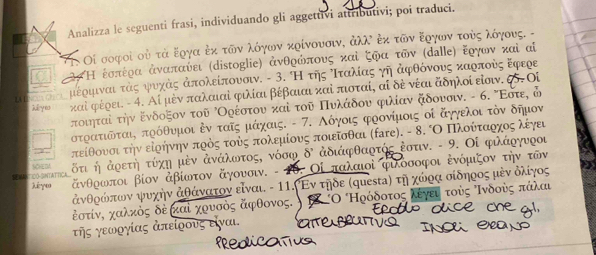 Analizza le seguenti frasi, individuando gli aggettivi attributivi; poi traduci.
Οἱ σοφοὶ οὐ τὰ ἔργα ἐκ τῶν λόγων κρίνουσιν, ἀλλ' ἐκ τῶν ἔργων τοὺς λόγους. -
Ἡ ἑσπέρα ἀναπαύει (distoglie) ἀνθρώπους καὶ ζῷα τῶν (dalle) ἔργων καὶ αἱ
μέριμναι τὰς ψυχὰς ἀπολείπουσιν. - 3. Ἡ τῆς Ἰταλίας γῆ ἀφθόνους καρποὺς ἔφερε
καὶ φέρει. - 4. Αἱ μὲν παλαιαὶ φιλίαι βέβαιαι καὶ πισταί, αἱ δὲ νέαι ἄδηλοί εἰσιν. 5. Οἱ
ποιηταὶ τὴν ἔνδοξον τοῦ Ὀρέστου καὶ τοῦ Πυλάδου φιλίαν ᾄδουσιν. - 6. Ἔστε, ὦ
στρατιῶται, πρόθυμοι ἐν ταῖς μάχαις. - 7. Λόγοις φρονίμοις οἱ ἄγγελοι τὸν δῆμον
πείθουσι τὴν εἰρήνην πρὸς τοὺς πολεμίους ποιεῖσθαι (fare). - 8. Ὁ Πλούταρχος λέγει
ὅτι ἡ ἀρετὴ τύχῃ μὲν ἀνάλωτος, νόσῳ δ' ἀδιάφθαρτός ἐστιν. - 9. Οἱ φιλάργυροι
ἄνθρωποι βίον ἀβίωτον ἄγουσιν. - 10. Οἱ παλαιοὶ φιλόσοφοι ἐνόμιζον τὴν τῶν
ἀνθρώπων ψυχὴν ἀθάνατον εἶναι. - 11. Ἐν τῇδε (questa) τῇ χώρᾳ σίδηρος μὲν ὀλίγος
ἐστίν, χαλκὸς δὲ καὶ χρυσὸς ἄφθονος. Ὁ Ἡρόδοτος λέγει τοὺς Ἰνδοὺς πάλαι
τῆς γεωργίας ἀπείρους εἶναι.
Erodo dice che gl.
attributiva Indi erano
Predicativa
λέγω
SCHEDA
λέγω